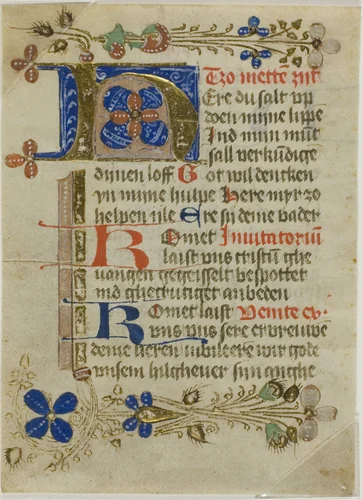 Tzo mette zijt
Here du salt vp
doen mijne lippe
Ind mijn mūt
sall verkūdige
dijnen loff Got wil dencken
yn mijne hulpe Here myr zo
helpen ile Ere sy deme vader
Komet Inuitatoriū
laist vns cristum ghe
uangen gegeisselt bespottet
ind ghecrutiget anbeden
Komet laist Uenite ex
vns vns sere ervreuwē
deme heren iubileere wir gode
vnsem heilgheuer sijn anghe